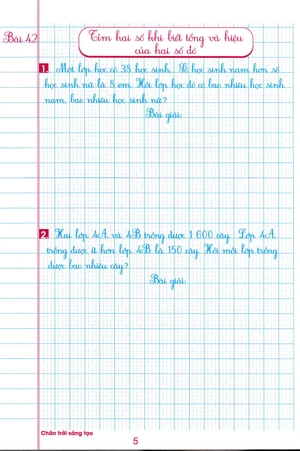 Bài 42
Tìm hai số khi biết tổng và hiệu
của hai số đó
1. Một lớp học có 38 học sinh. Số học sinh nam hơn số
học sinh nữ là 8 em. Hỏi lớp học đó có bao nhiêu học sinh
nam, bao nhiêu học sinh nữ?
Bài giải:
2. Hai lớp 4A và 4B trồng được 1 600 cây. Lớp 4A
trồng được ít hơn lớp 4B là 150 cây. Hỏi mỗi lớp trồng
được bao nhiêu cây?
Bài giải:
Chân trời sáng tạo
5